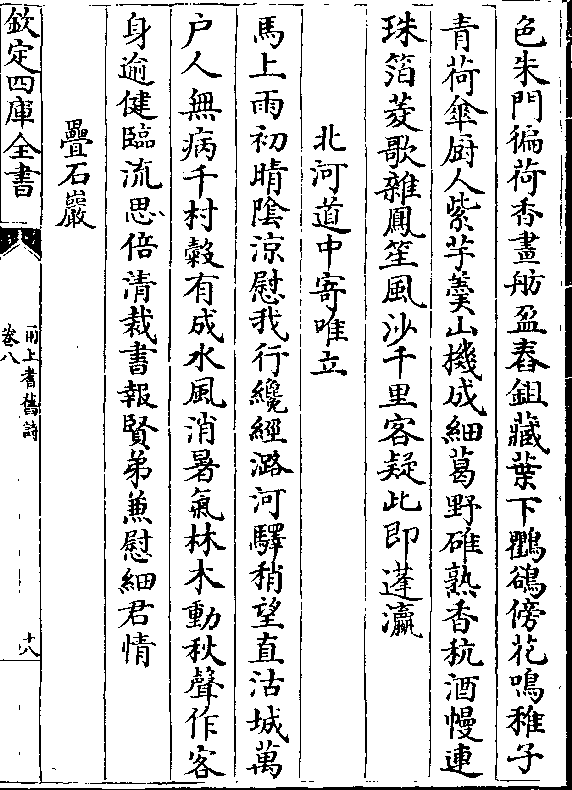 色朱門徧荷香畫舫盈舂鉏藏葉下鸜鵒傍花鳴稚子
青荷傘厨人紫芋羹山機成細葛野碓熟香秔酒幔連
珠箔菱歌雜鳳笙風沙千里客疑此即蓬瀛
北河道中寄唯立
馬上雨初晴陰涼慰我行纔經潞河驛稍望直沽城萬
户人無病千村糓有成水風消暑氣林木動秋聲作客
身逾健臨流思倍清裁書報賢弟兼慰細君情
疊石巖
欽定四庫全書
甬上耆舊詩
卷八
十八